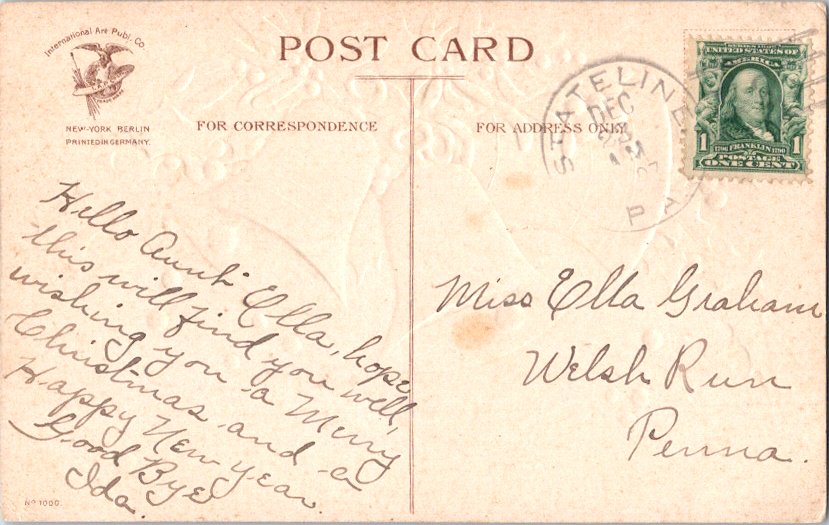 International Art Publ. Co.
NEW-YORK BERLIN
PRINTED IN GERMANY.
POST CARD
FOR CORRESPONDENCE
FOR ADDRESS ONLY
STATELINE
DEC
AM
PA
SERIES 1902
UNITED STATES OF
AMERICA
1706 FRANKLIN 1790
1 POSTAGE 1
ONE CENT
Hello Aunt Ella, hope
this will find you well,
wishing you a Merry
Christmas and a
Happy New year.
Good Bye
Ida.
Miss Ella Graham
Welsh Run
Penna.
No 1000.